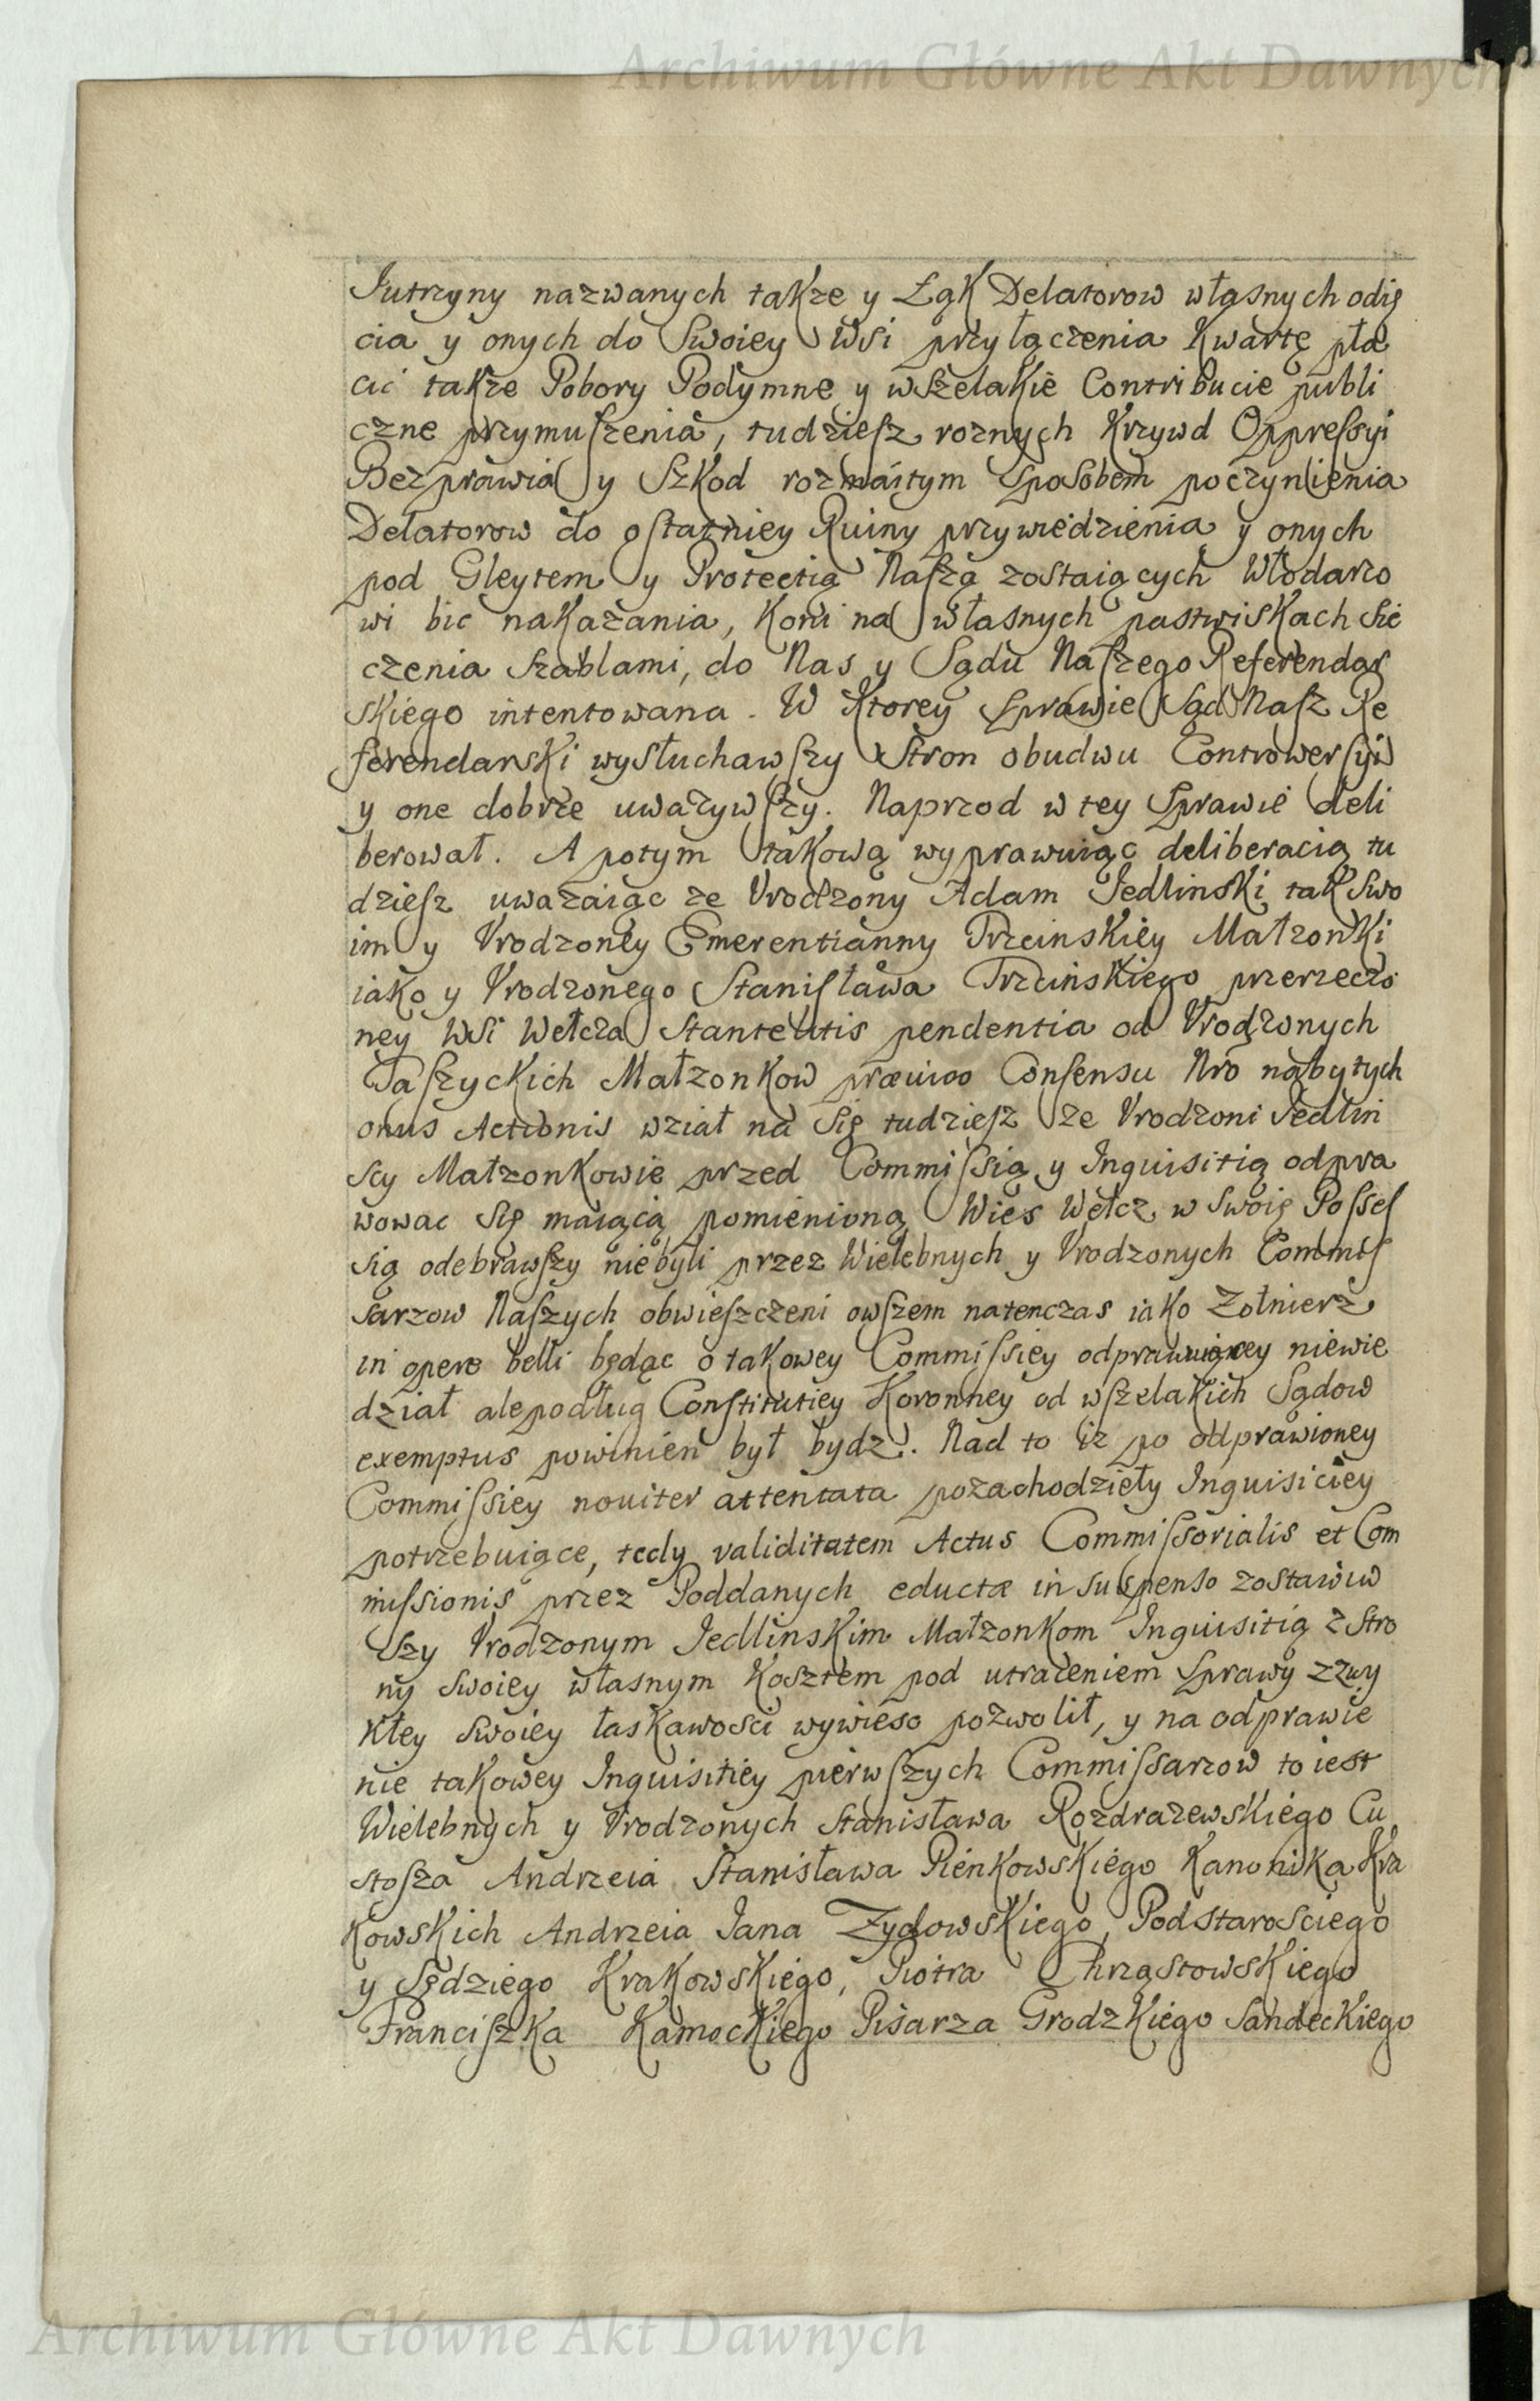 Archiwum Główne Akt Dawnych
Jutrzyny nazwanych takze y Łąk Delatorow własnych odię
cia y onych do Swoiey Wsi przyłączenia Kwartę pła
cić takze Pobory Podymne y wszelakie Contribucie publi
czne przymuszenia, tudziesz roznych Krzywd Oppressyi
Bezprawia y Szkod rozmaitym sposobem poczynienia
Delatorow do ostatniey Ruiny przywiedzienia y onych
pod Gleytem y Protectią Naszą zostaiących Włodarzo
wi bic nakazania, Koni na własnych pastwiskach sie
czenia szablami, do Nas y Sądu Naszego Referendar
skiego intentowana. W Ktorey sprawie Sąd Nasz Re
ferendarski wysłuchawszy Stron obudwu Controwersyi
y one dobrze uwazywszy. Naprzod w tey Sprawie deli
berował. A potym takową wyprawuiąc deliberacią tu
dziesz uwazaiąc ze Vrodzony Adam Jedlinski tak Swo
im y Vrodzoney Emerentianny Trzcinskiey Małzonki
iako y Vrodzonego Stanisława Trzcinskiego przerzeczo
ney Wsi Wełcza stante litis pendentia od Vrodzonych
Taszyckich Małzonkow prævio Consensu Nro nabytych
onus Actionis wział na Się tudziesz ze Vrodzoni Jedlin
scy Małzonkowie przed Commissią y Inquisitią odpra
wowac Się maiącą pomienioną Wies Wełcz w Swoię Posses
sią odebrawszy niebyli przez Wielebnych y Vrodzonych Commis
sarzow Naszych obwieszczeni owszem natenczas iako Zołnierz
in opere belli będąc o takowey Commissiey odprawuiącey niewie
dział ale podług Constitutiey Koronney od wszelakich Sądow
exemptus powinien był bydz. Nad to iz po odprawioney
Commissiey noviter attentata pozachodzieły Inquisiciey
potrzebuiące, tedy validitatem Actus Commissorialis et Com
missionis przez Poddanych eductæ in suspenso zostawiw
szy Vrodzonym Jedlinskim Małzonkom Inquisitią z Stro
ny Swoiey własnym Kosztem pod utraceniem Sprawy zzwy
kłey Swoiey łaskawosci wywieso pozwolił, y na odprawie
nie takowey Inquisitiey pierwszych Commissarzow to iest
Wielebnych y Vrodzonych Stanisława Rozdrazewskiego Cu
stosza Andrzeia Stanisława Pienkowskiego Kanonika Kra
kowskich Andrzeia Jana Zydowskiego, Podstarosciego
y Sędziego Krakowskiego, Piotra Chrząstowskiego
Franciszka Kamockiego Pisarza Grodzkiego Sandeckiego
Archiwum Główne Akt Dawnych